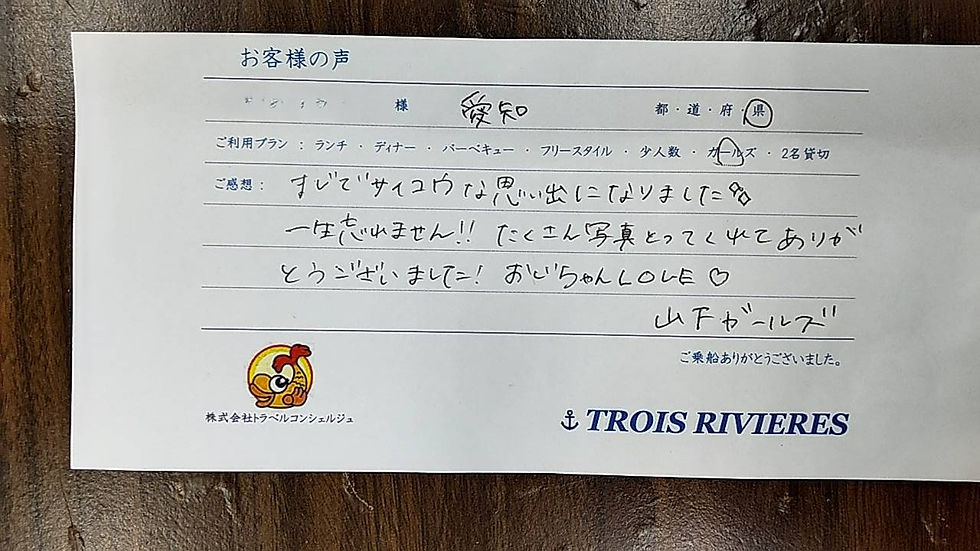 お客様の声
様 愛知 都・道・府・県
ご利用プラン : ランチ ・ ディナー ・ バーベキュー ・ フリースタイル ・ 少人数 ・ ガールズ ・ 2名貸切
ご感想 : まじでサイコウな思い出になりました
一生忘れません!! たくさん写真とってくれてありが
とうございました! おじちゃんLOVE♡
山下ガールズ
ご乗船ありがとうございました。
株式会社トラベルコンシェルジュ
TROIS RIVIERES